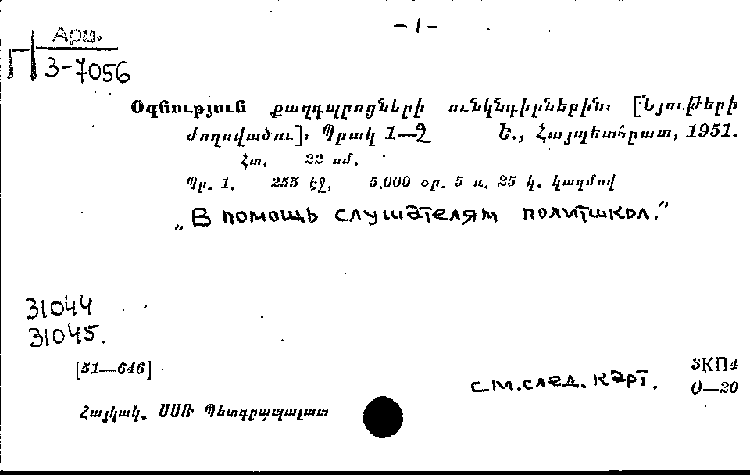 -1-
Арм.
3-7056
Օգնություն քաղդպրոցների ունկնդիրներին։ [Նյութերի
ժողովածու]։ Պրակ 1—2 Ե., Հայպետհրատ, 1951.
Հտ. 22 սմ.
Պր. 1. 255 էջ. 5.000 օր. 5 ռ. 25 կ. կազմով
„В помощь слушателям политшкол.”
31044
31045.
[51—646]
см.след. карт.
3КП4
Օ—20
Հայկակ. ՍՍՌ Պետգրապալատ